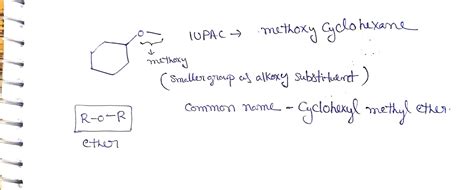 O IUPAC → methoxy cyclohexane
methoxy
(smaller group as alkoxy substituent)
Common name - Cyclohexyl methyl ether.
R-O-R
ether